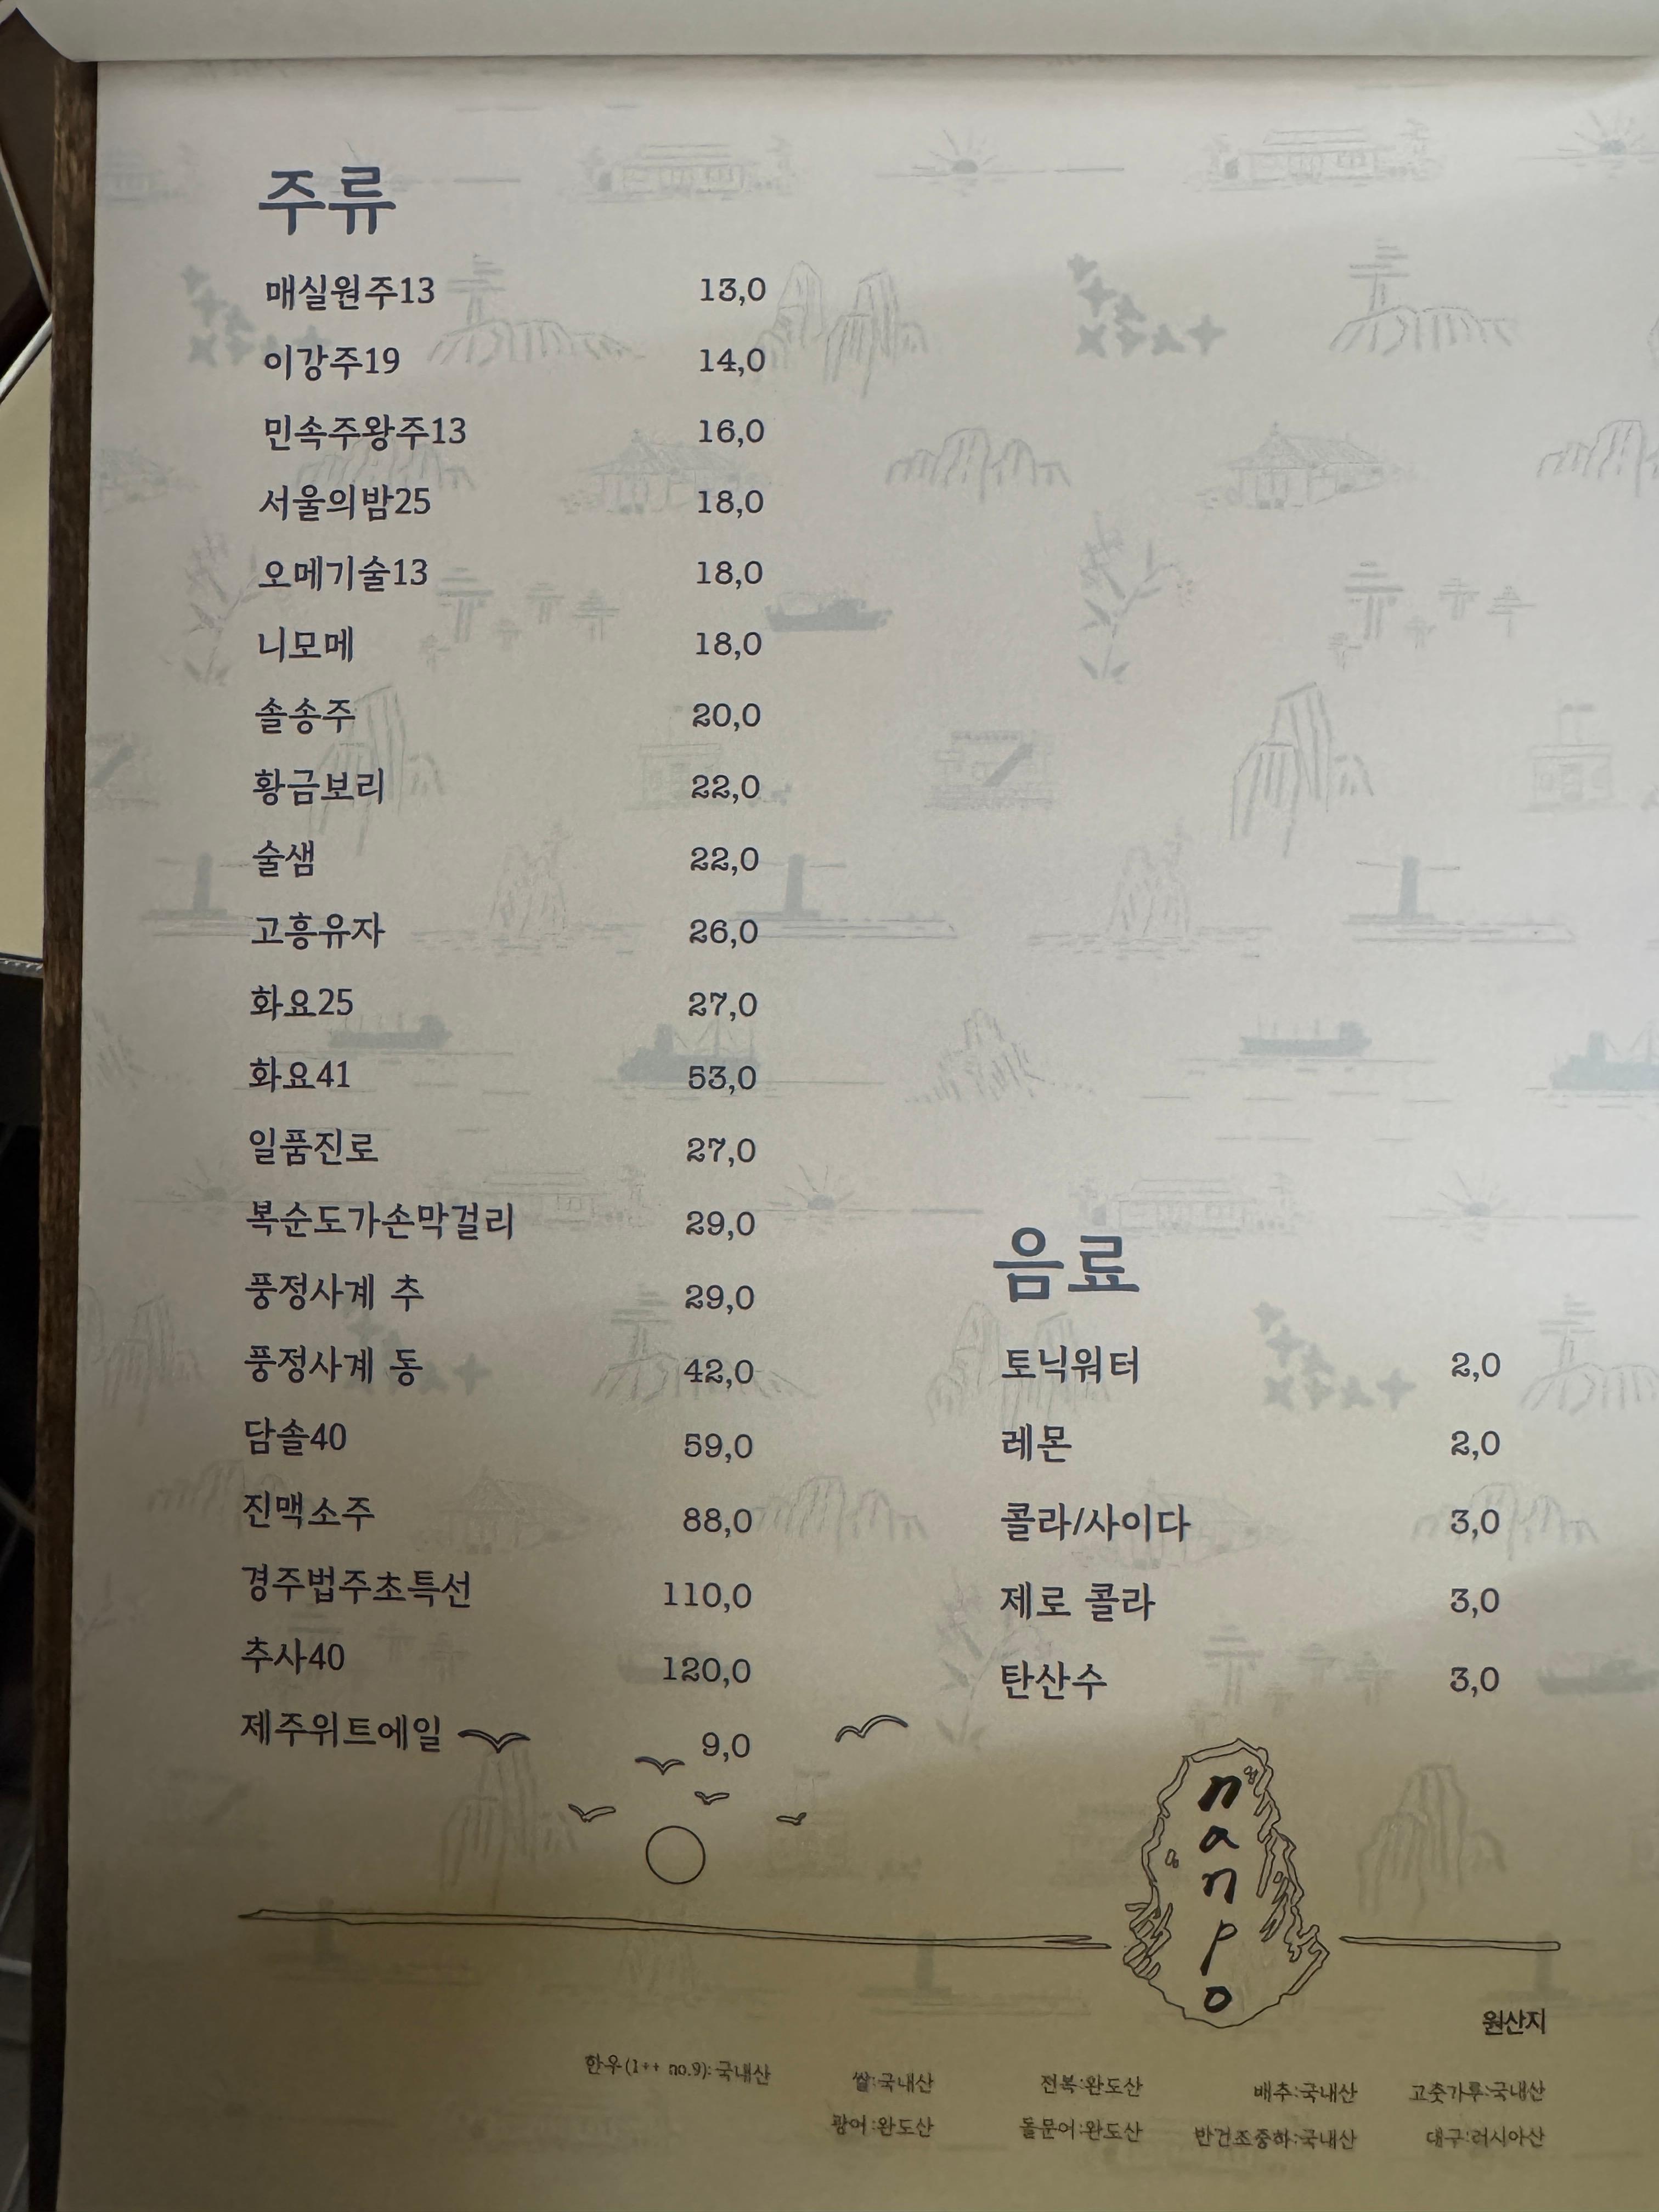 주류
매실원주13 13,0
이강주19 14,0
민속주왕주13 16,0
서울의밤25 18,0
오메기술13 18,0
니모메 18,0
솔송주 20,0
황금보리 22,0
술샘 22,0
고흥유자 26,0
화요25 27,0
화요41 53,0
일품진로 27,0
복순도가손막걸리 29,0
풍정사계 추 29,0
풍정사계 동 42,0
담솔40 59,0
진맥소주 88,0
경주법주초특선 110,0
추사40 120,0
제주위트에일 9,0
음료
토닉워터 2,0
레몬 2,0
콜라/사이다 3,0
제로 콜라 3,0
탄산수 3,0
nanpo
원산지
한우(1++ no.9):국내산 쌀:국내산 전복:완도산 배추:국내산 고춧가루:국내산
광어:완도산 돌문어:완도산 반건조중하:국내산 대구:러시아산